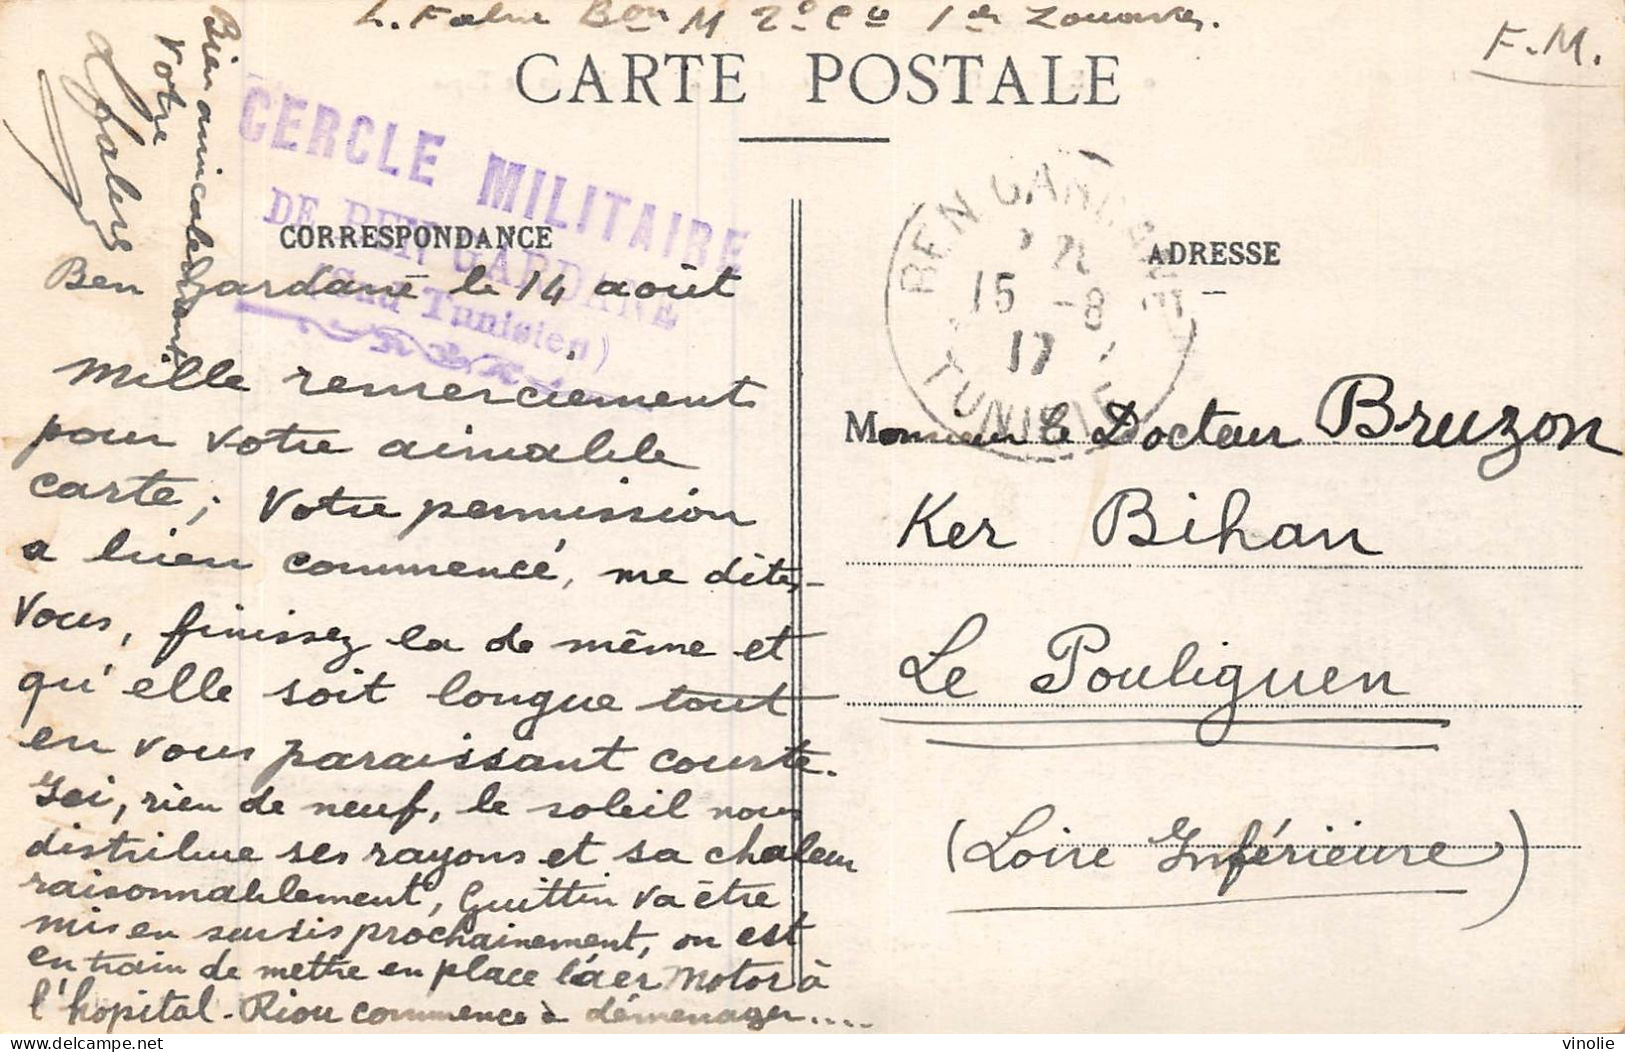 L. Fabre Bon M 2e Cie 1er Zouaves.
F.M.
CARTE POSTALE
CERCLE MILITAIRE
DE BEN GARDANE
(Sud Tunisien)
CORRESPONDANCE
ADRESSE
BEN GARDANE
15 -8
17
TUNISIE
Ben Gardane le 14 août
Mille remerciements
pour votre aimable
carte; votre permission
a bien commencé, me dites-
vous, finissez la de même et
qu'elle soit longue tout
en vous paraissant courte.
Ici, rien de neuf, le soleil nous
distribue ses rayons et sa chaleur
raisonnablement, Guittin va être
mis en sursis prochainement, on est
en train de mettre en place l'aer motor à
l'hopital. Riou commence à déménager....
Bien amicalement
Votre
LFabre
Monsieur le Docteur Bruzon
Ker Bihan
Le Pouliguen
(Loire Inférieure)
vinolie